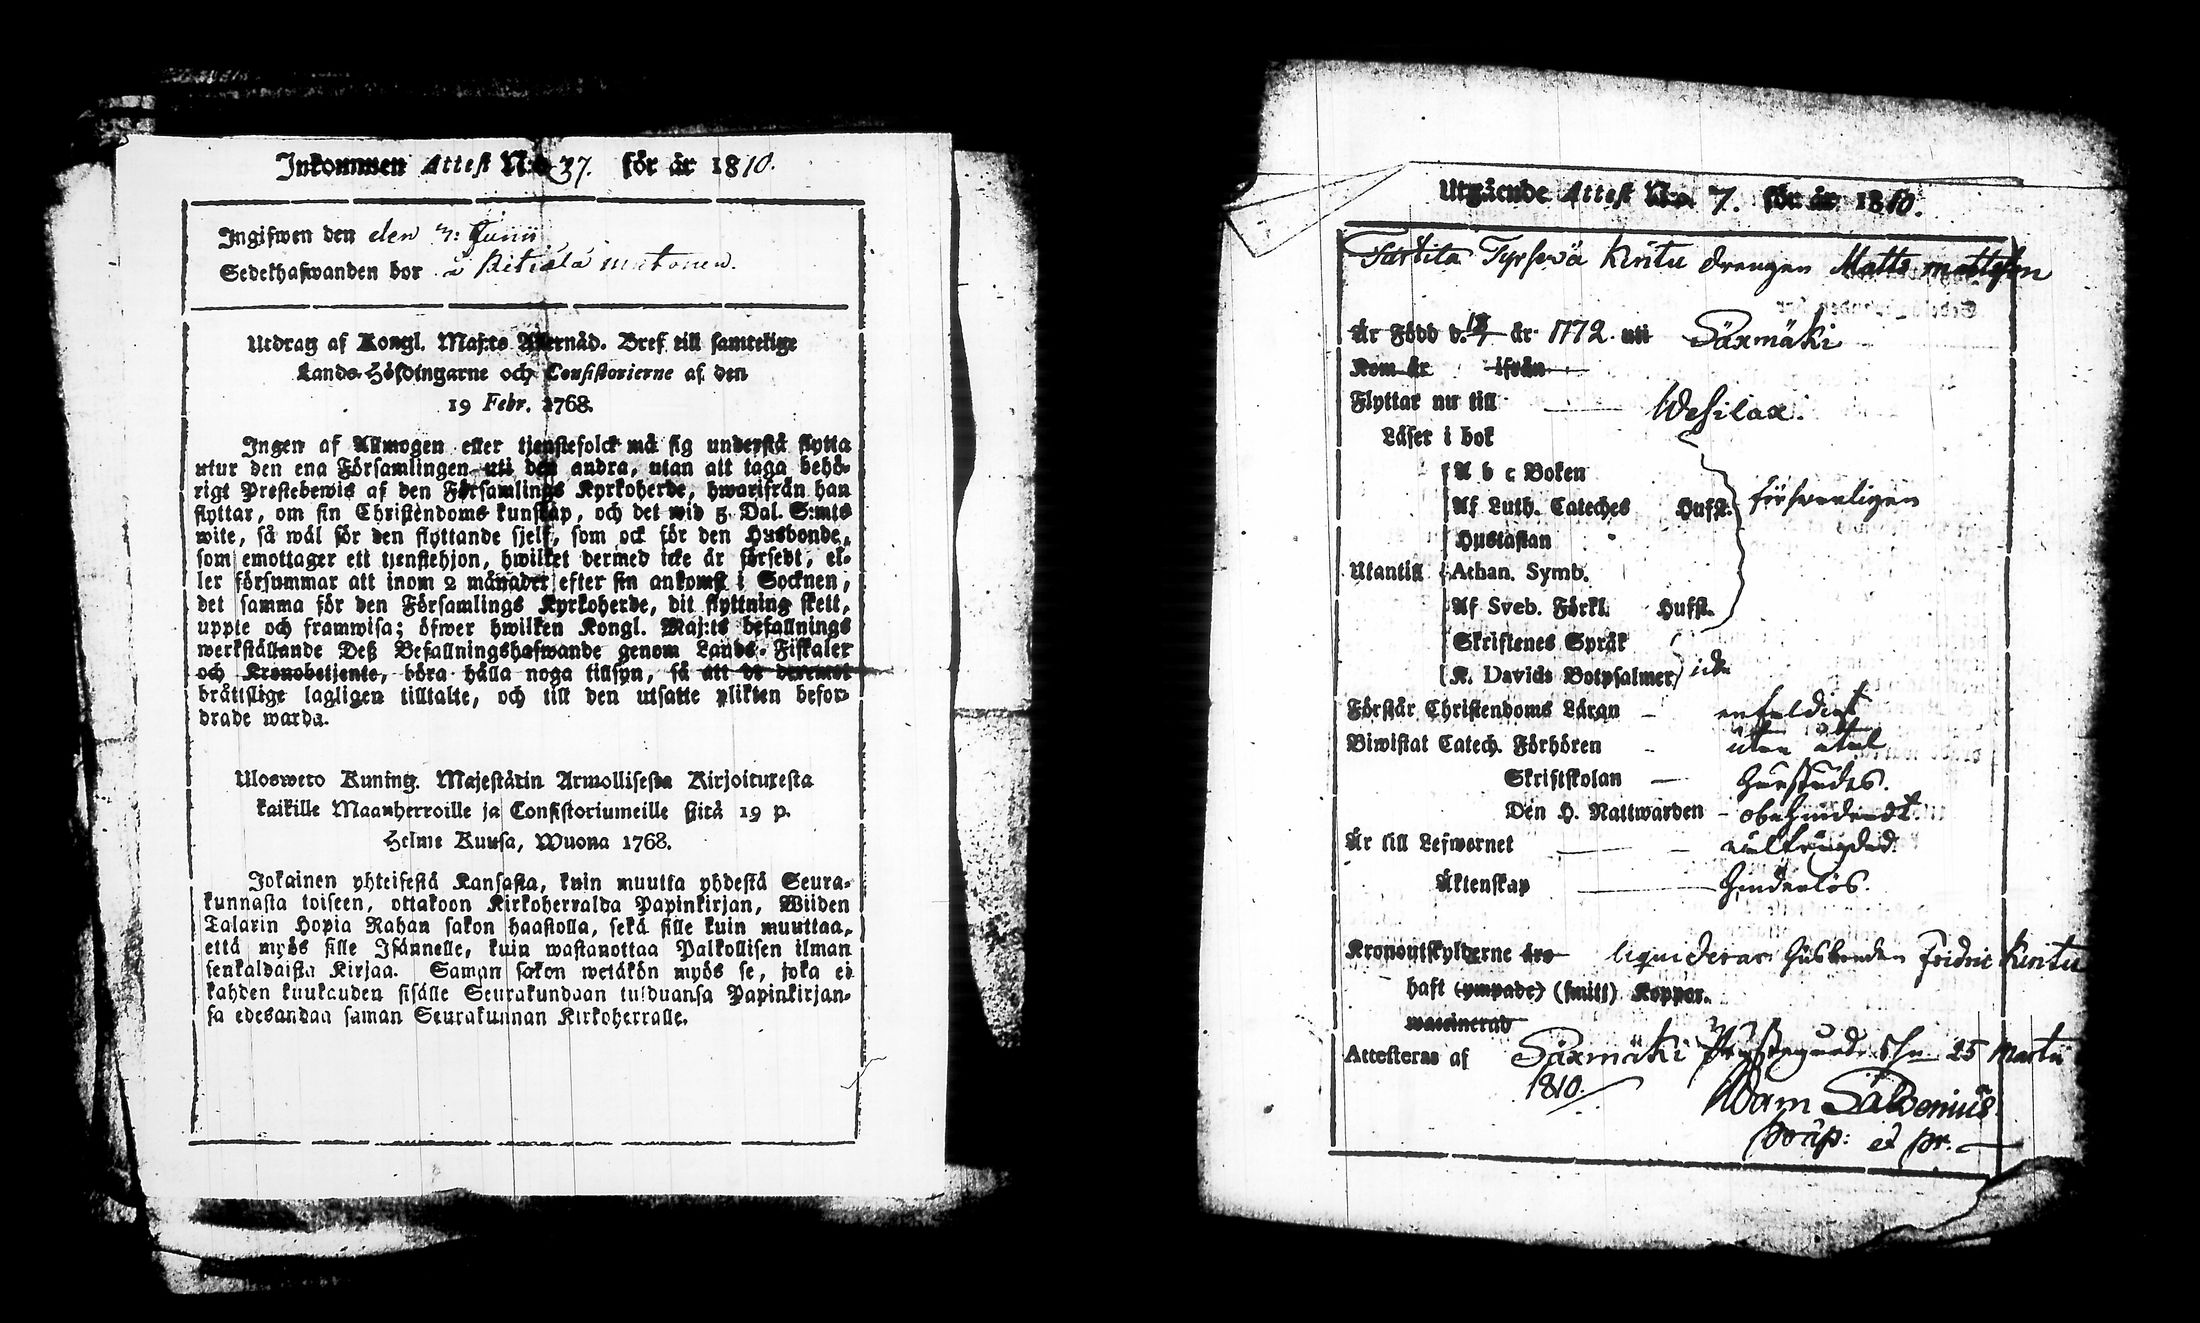 Inkommen Attest N:o 37. för år 1810.
Ingifwen den den 3: Junii
Sedelhafwanden bor i
Utdrag af Kongl. Maj:ts Allernåd. Bref till samtelige
Lands-Höfdingarne och Consistorierne af den
19 Febr. 1768.
Ingen af Allmogen eller tjenstefolck må sig understå flytta
utur den ena Församlingen uti den andra, utan att taga behö-
rigt Prestebewis af den Församlings Kyrkoherde, hwarifrån han
flyttar, om sin Christendoms kunskap, och det wid 5 Dal. S:mts
wite, så wäl för den flyttande sjelf, som ock för den Husbonde,
som emottager ett tjenstehjon, hwilket dermed icke är försedt, el-
ler försummar att inom 2 månader efter sin ankomst i Socknen,
det samma för den Församlings Kyrkoherde, dit flyttning skett,
uppte och framwisa; öfwer hwilken Kongl. Maj:ts befallnings
werkställande Deß Befallningshafwande genom Lands-Fiskaler
och Kronobetjente, böra hålla noga tillsyn, så att de deremot
bråttslige lagligen tilltalte, och till den utsatte plikten befor-
drade warda.
Ulosweto Kuning. Majestätin Armollisesta Kirjoituxesta
kaikille Maanherroille ja Consistoriumeille siitä 19 p.
Helme Kuusa, Wuona 1768.
Jokainen yhteisestä Kansasta, kuin muutta yhdestä Seura-
kunnasta toiseen, ottakoon Kirkoherralda Papinkirjan, Wiiden
Talarin Hopia Rahan sakon haastolla, sekä sille kuin muuttaa,
että myös sille Isännelle, kuin wastanottaa Palkollisen ilman
senkaldaista Kirjaa. Saman sakon wetäkön myös se, joka ei
kahden kuukauden sisälle Seurakundaan tulduansa Papinkirjan-
sa edesandaa saman Seurakunnan Kirkoherralle.
Utgående Attest N:o 7. för år 1810.
Tyrsevä Kintu drengen Matts Mattsson
Är Född d. år 1772. uti Säxmäki
Kom år ifrån
Flyttar nu till Wesilax.
Läser i bok
A b c Boken
Af Luth. Cateches Hufst. försvarligen
Hustaflan
Utantill Athan. Symb.
Af Sveb. Förkl. Hufst.
Skriftenes Språk
K. Davids Botpsalmer icke
Förstår Christendoms Läran enfaldigt
Biwistat Catech. Förhören utan åtal
Skriftskolan
Den H. Nattwarden obehindradt.
Är till Lefwernet
Äktenskap hinderlös.
Kronoutskylderne äro liquiderar husbonden Fridric Kintu
haft (ympade) (smitt) Koppor.
waccinerad
Attesteras af Säxmäki Prästegård d. 25 Martii
1810.
Adam
præp: et pr.